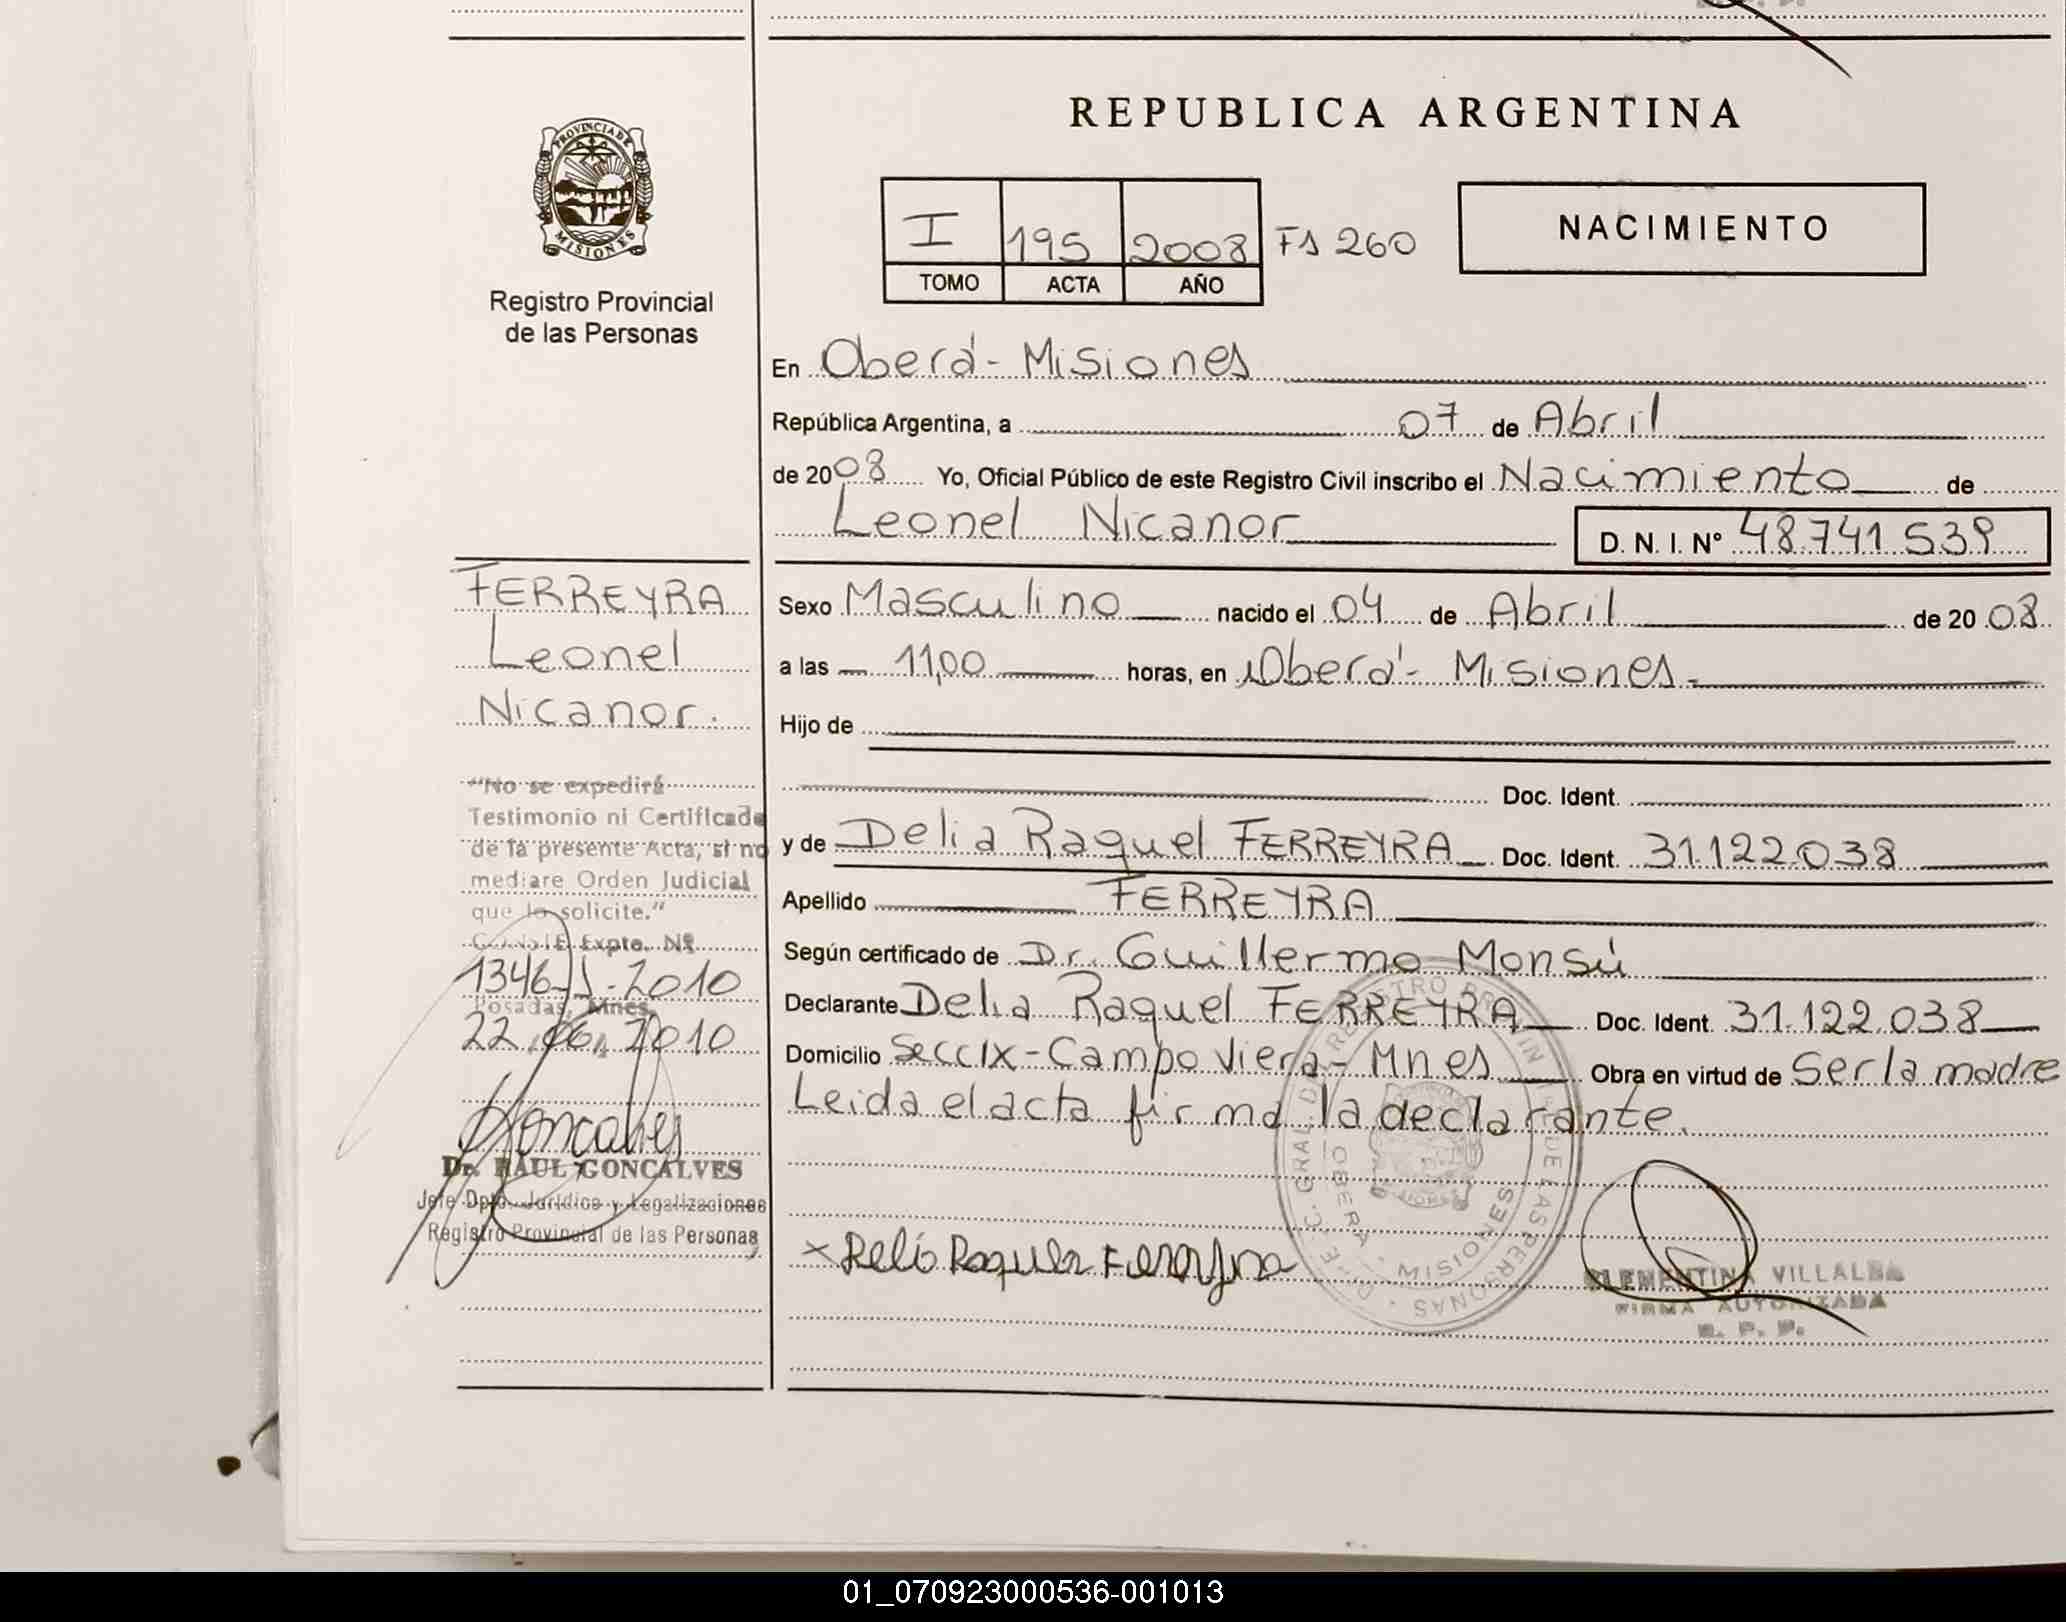 REPUBLICA ARGENTINA
PROVINCIA DE
MISIONES
Registro Provincial
de las Personas
I 195 2008 Fs 260
TOMO ACTA AÑO
NACIMIENTO
En Oberá - Misiones
República Argentina, a 07 de Abril
de 2008 Yo, Oficial Público de este Registro Civil inscribo el Nacimiento de
Leonel Nicanor D. N. I. Nº 48.741.539
FERREYRA
Leonel
Nicanor.
Sexo Masculino nacido el 04 de Abril de 2008
a las 11,00 horas, en Oberá - Misiones.
Hijo de
Doc. Ident.
y de Delia Raquel FERREYRA Doc. Ident. 31.122.038
Apellido FERREYRA
Según certificado de Dr. Guillermo Monsú
Declarante Delia Raquel FERREYRA Doc. Ident. 31.122.038
Domicilio Secc IX - Campo Viera - Mnes Obra en virtud de Ser la madre
Leida el acta firma la declarante.
"No se expedirá
Testimonio ni Certificado
de la presente Acta, si no
mediare Orden Judicial
que lo solicite."
Expte. Nº
1346-J-2010
Posadas, Mnes.
22.06.2010
Goncalves
Dr. RAUL GONCALVES
Jefe Dpto. Jurídico y Legalizaciones
Registro Provincial de las Personas
REGISTRO PROVIN DE LAS PERSONAS
OBERA - MISIONES
CLEMENTINA VILLALBA
FIRMA AUTORIZADA
R. P. P.
01_070923000536-001013